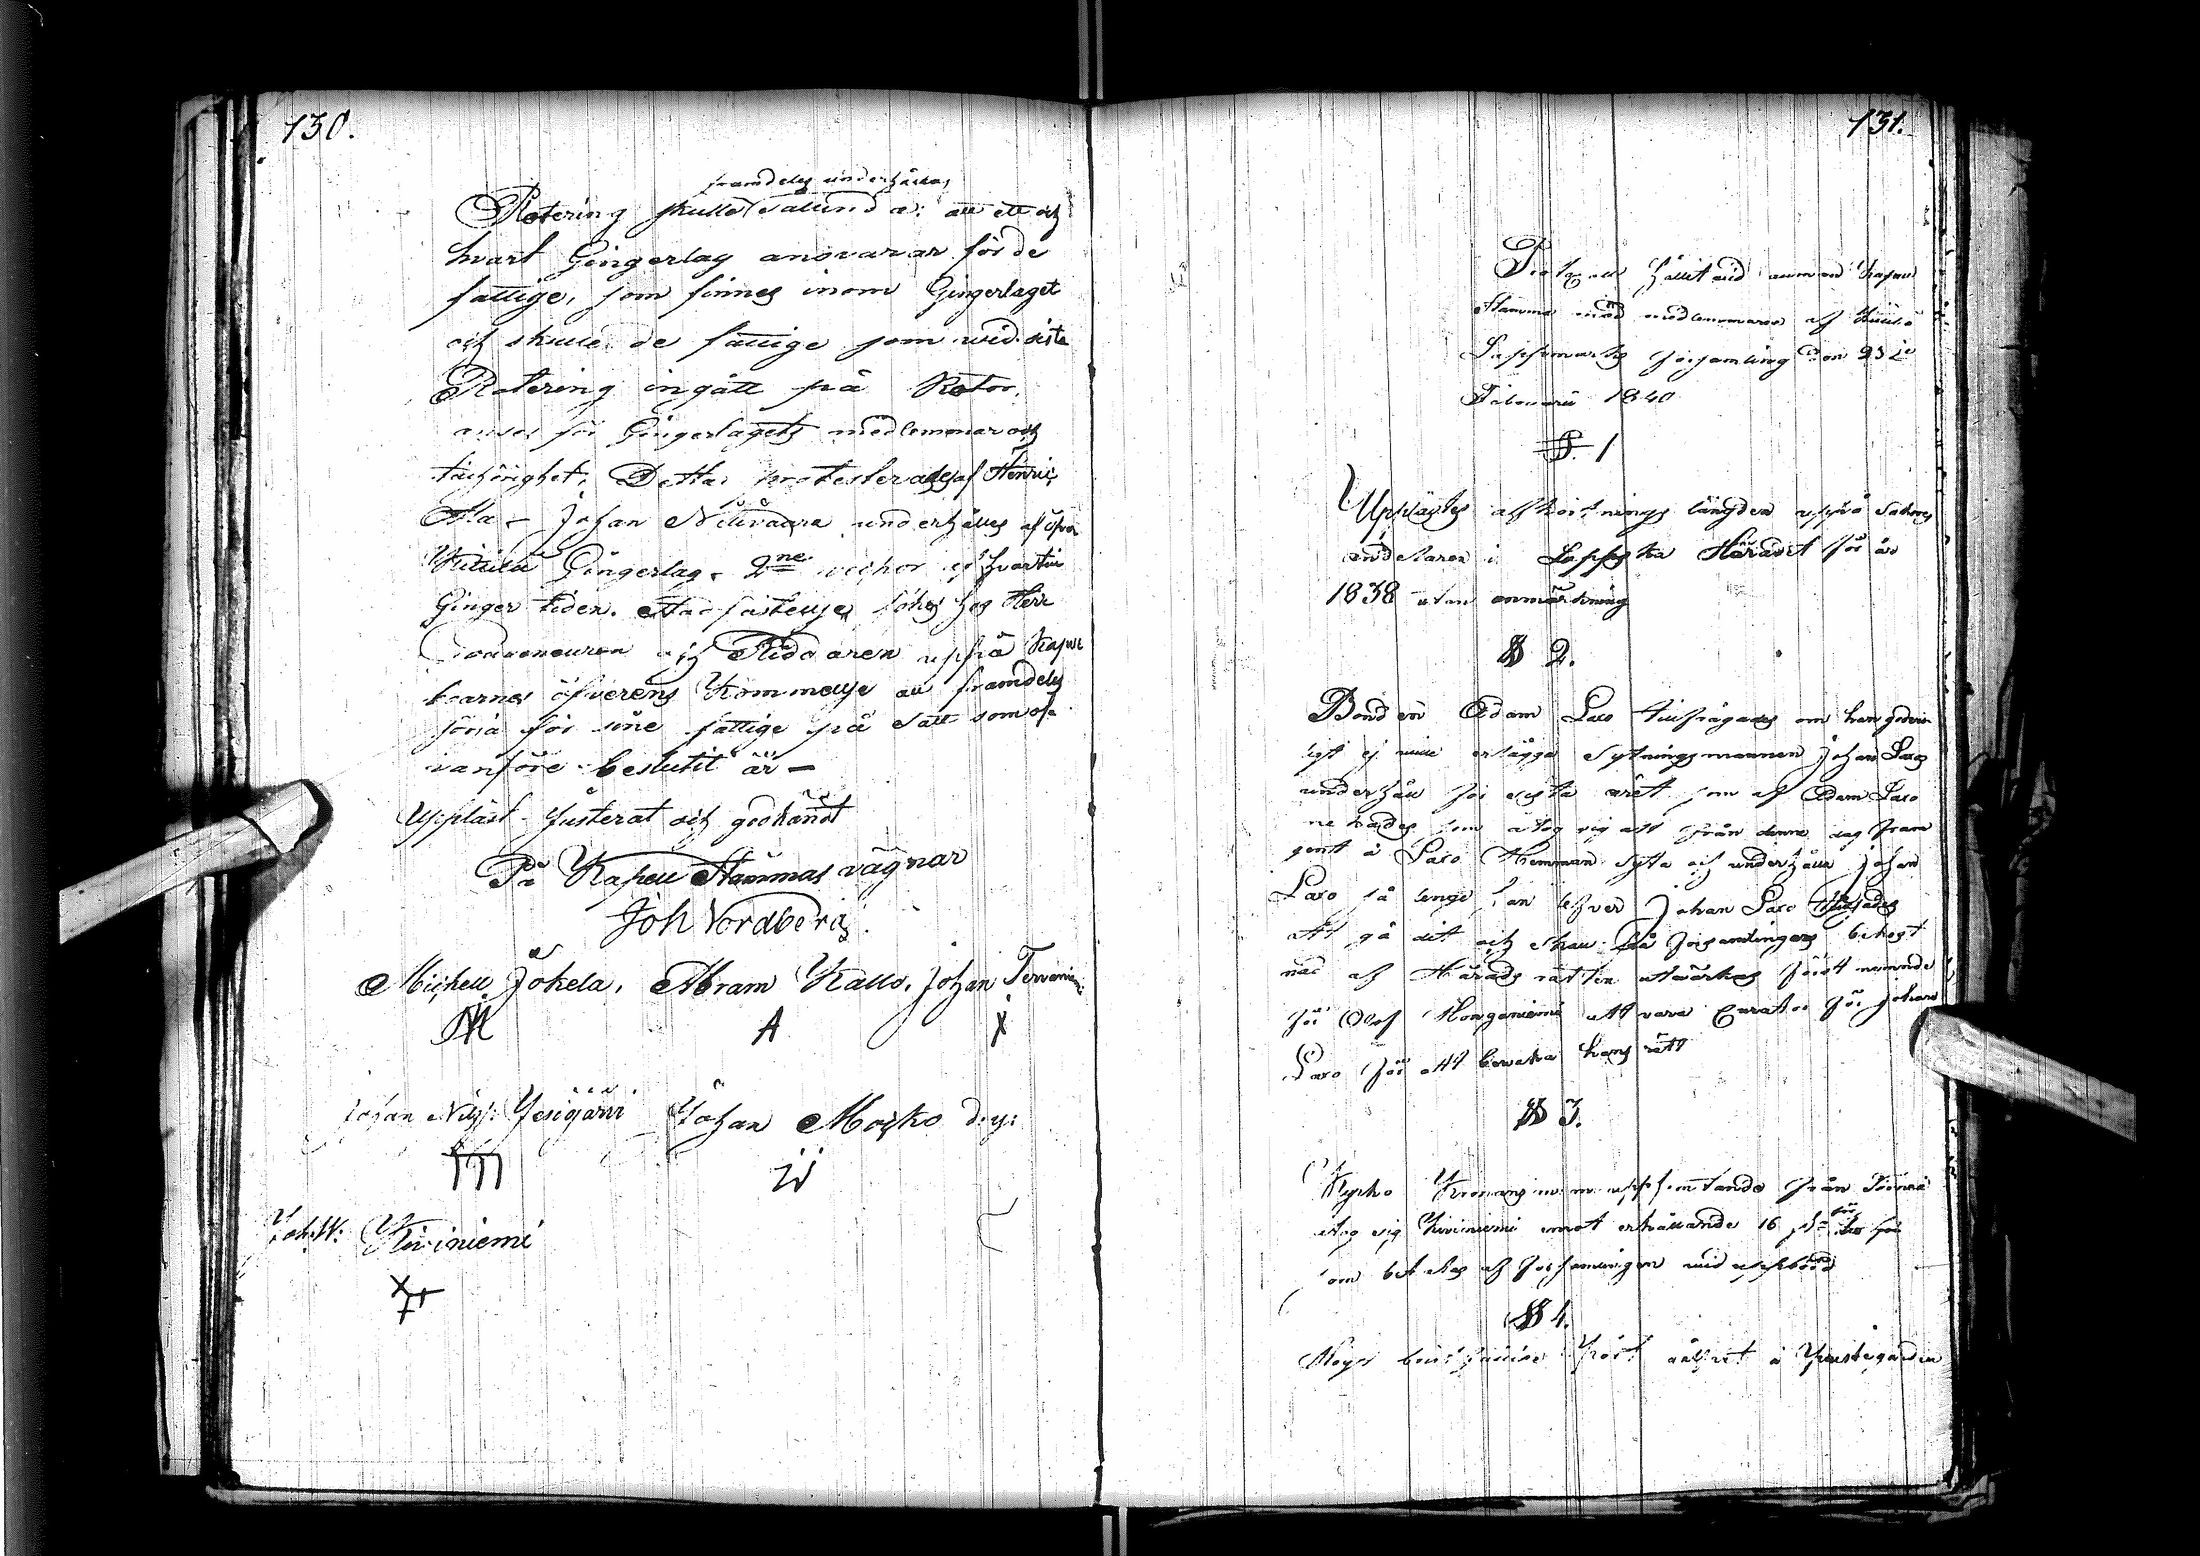 130.
framdeles underhållas,
Rotering skulle sålunda: att ett och
hvart Gingerlag ansvarar för de
fattige, som finnes inom Gingerlaget
och skulle de fattige som wid sista
Rotering ingått på Rotor,
anses för Gingerlagets medlemmar och
tillhörighet. Detta protesterades af Henric
Johan Nilivaara underhålles af öfra
Kittilä Gingerlag 2ne veckor
Ginger tiden. hos Herr
Gouverneuren och upså Kapell
boarnes öfverens Kommelse att framdeles
sörja för sine fattige på sätt som of-
vanföre beslutit är —
Uppläst Justerat och godkändt
På Kapell Stämmas vägnar
Joh Nordberg.
Michell Jokela, Abram Kallo, Johan Terveniemi
M A X
Johan Nilss: Jesiöjärvi Johan Moisko d:y:
Joh:W: Kiviniemi
131.
Protocoll hållit vid allmän Kapell
Stämma med medlemmarne af Kittilä
Lappmarks församling den 23de
Februarii 1840
§. 1
Upplästes afkortnings längden uppå Sakören
i Lappska Häradet för år
1838 utan anmärkning
§ 2.
Bonden Adam Laxo tillfrågades om han
ej ville erlägga Sytningsmannen Johan Laxos
underhåll för sista året som af Adam Laxo
nekades som åtog sig att från denne dag fram
gent å Laxo Hemman syta och underhålla Johan
Laxo så lenge han lefver Johan Laxo
att gå dit och skall på församlingens bekost
nad af Härads rätten utvärkas
för Olof Honganiemi att vara Curator för Johan
Laxo för att bewaka hans rätt
§ 3.
Kyrko från
åtog sig Kiviniemi emot erhållande 16
som betalas af församlingen vid uppbörd
§ 4.
å Prästegården